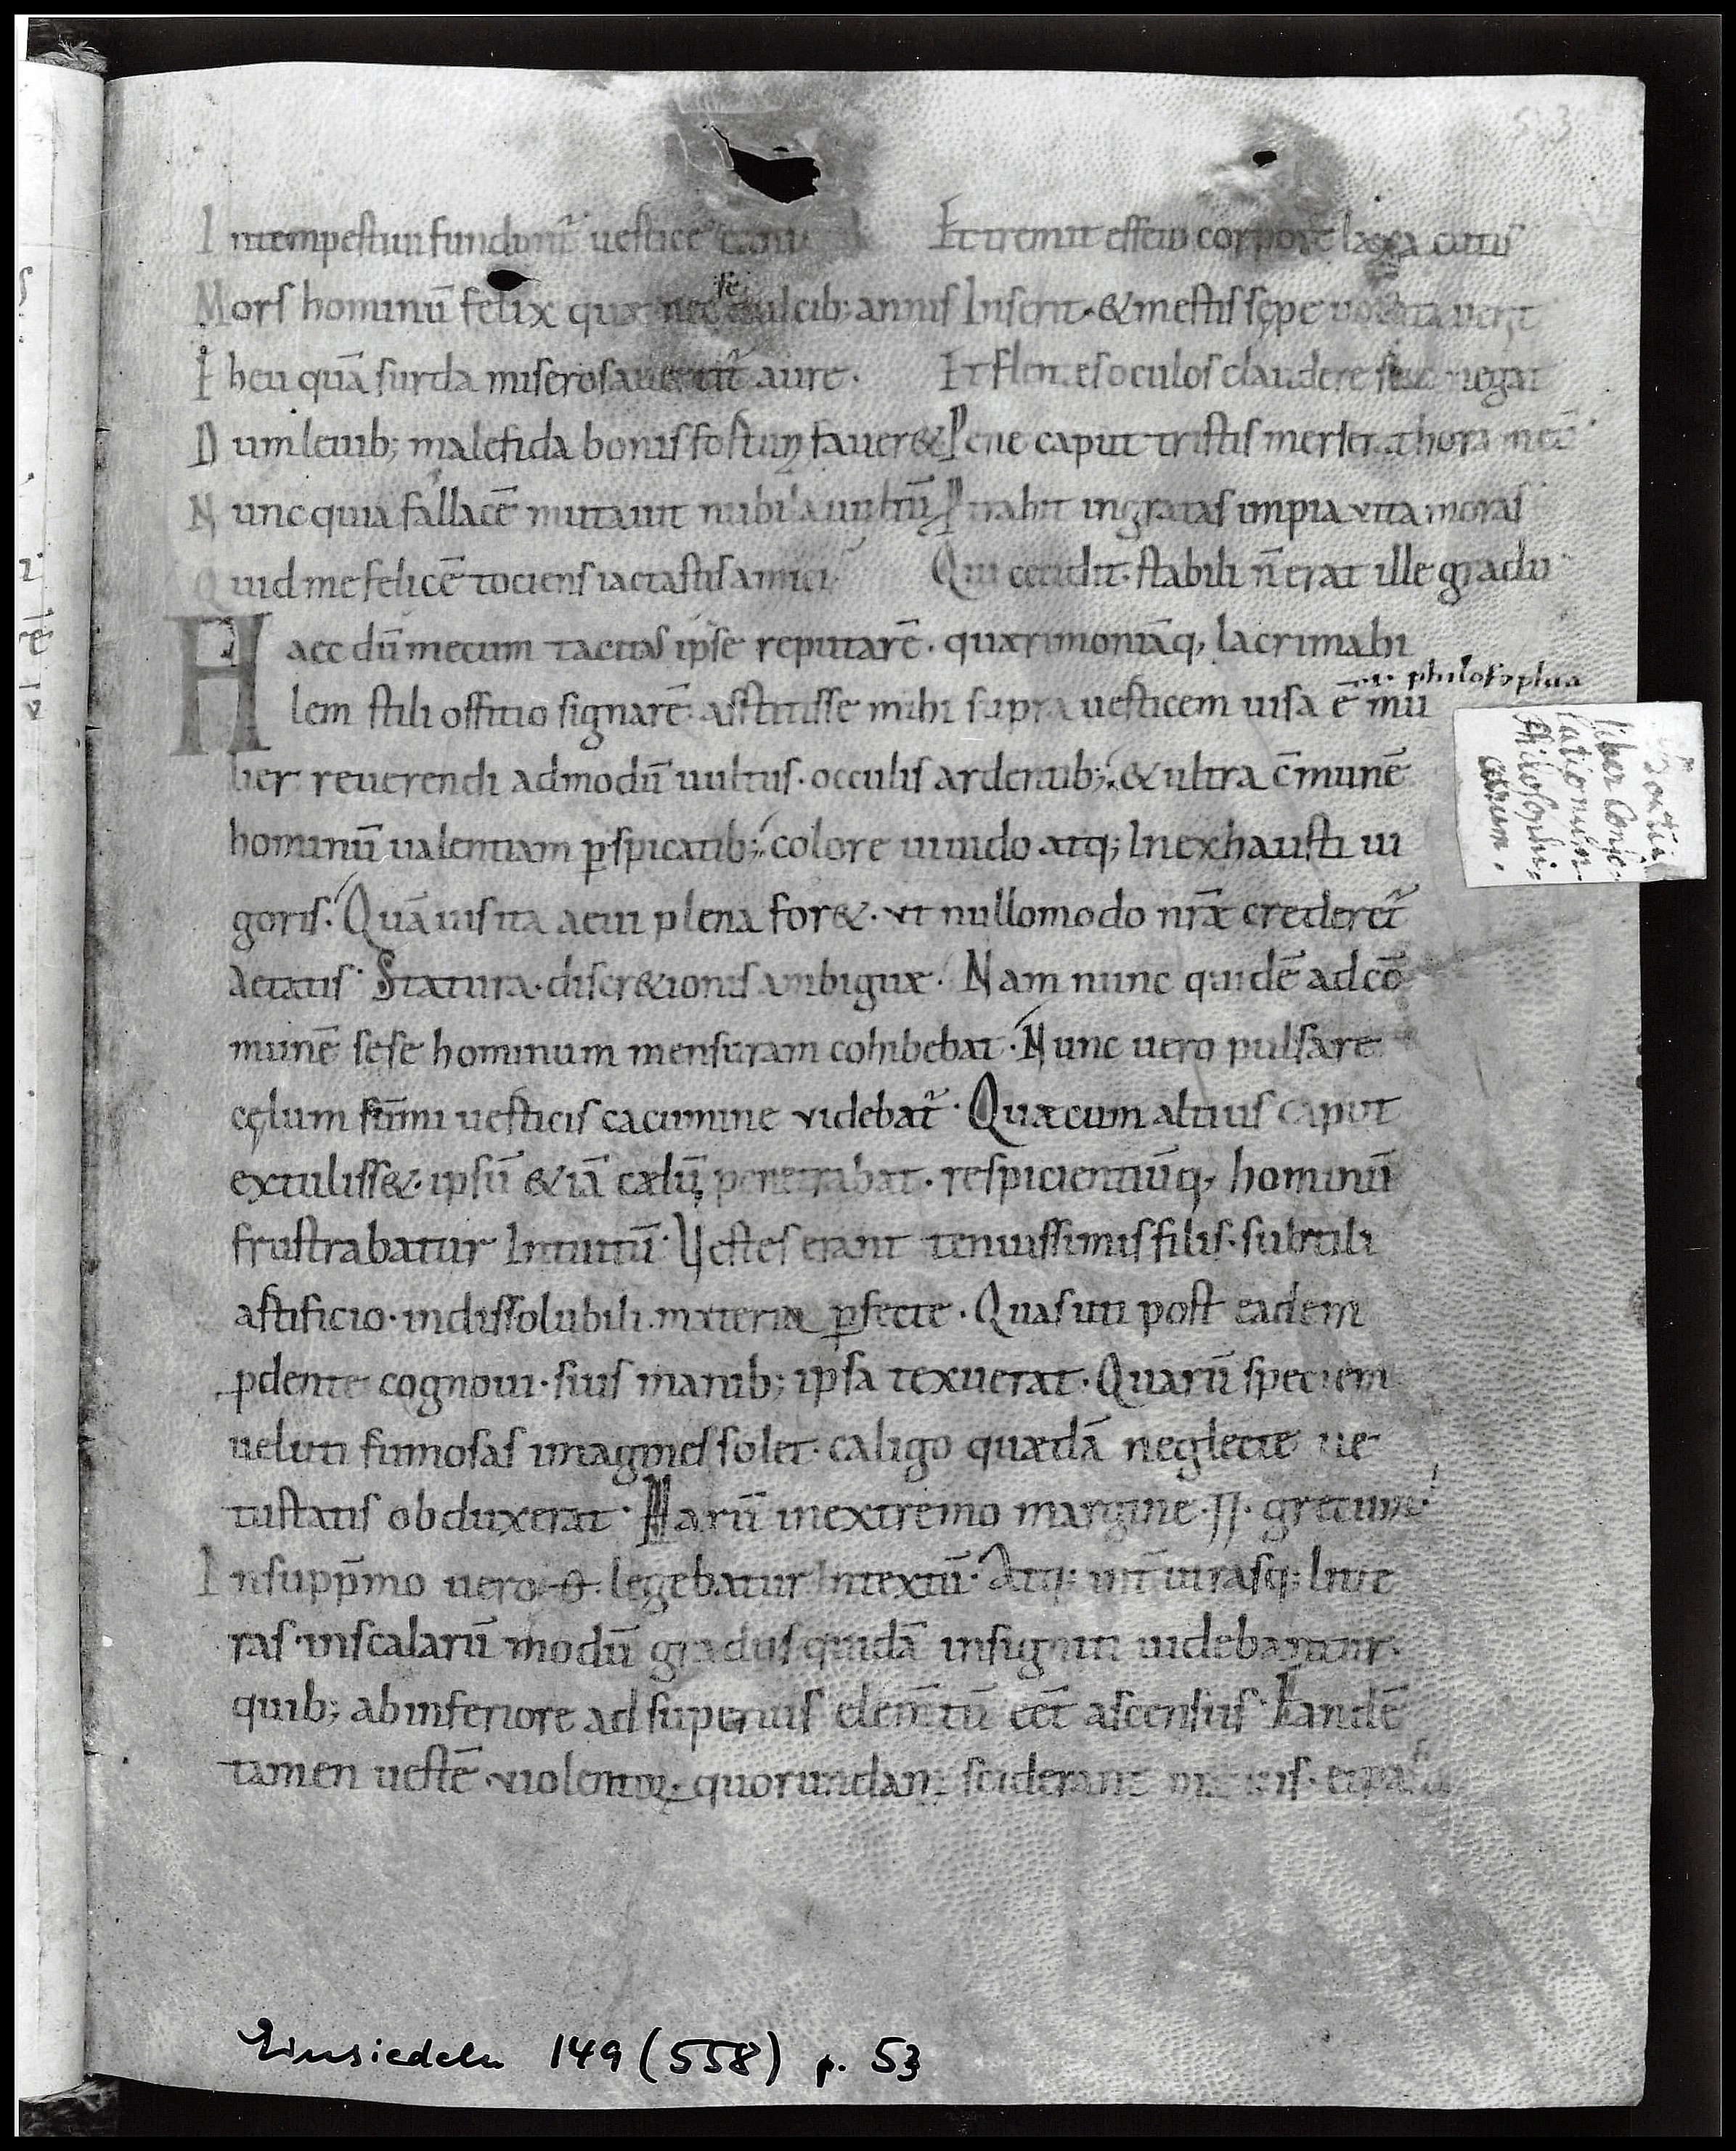 53
Intempestiui fundunt᷑ uertice cani Et tremit effeto corpore laxa cutis
se
Mors hominū felix quæ nec dulcib; annis Inserit · & mestis sępe uocata uenit
Eheu quā surda miseros auertit᷑ aure · Et flentes oculos claudere seua negat
Dum leuib; malefida bonis fortuna fauer& Pene caput tristis merserat hora meū
Nunc quia fallacē mutauit nubila uultū Protrahit ingratas impia vita moras
Quid me felicē tociens iactastis amici Qui cecidit · stabili n̄ erat ille gradu
Haec dū mecum tacitus ip̄se reputarē · quærimoniāq; lacrimabi
.i. philosophia
lem stili offitio signarē · astitisse mihi supra uerticem uisa ē mu
lier reuerendi admodū uultus · occulis ardentib; & ultra c̄munē
hominū ualentiam ꝑspicatib; colore uiuido atq; Inexhausti ui
goris · Quā uis ita aeui plena for& · vt nullomodo nr̄æ crederet᷑
Aetatis · Statura · discr&ionis ambiguæ · Nam nunc quidē ad cō
munē sese hominum mensuram cohibebat · Nunc uero pulsare
cęlum sum̄mi uerticis cacumine videbat᷑ · Quæ cum altius caput
extuliss& · ipsū &iā cælū penetrabat · respicientiūq; hominū
frustrabatur Intuitū · Vestes erant tenuissimis filis · subtili
artificio · indissolubili materia ꝑfecte · Quas uti post eadem
ꝓdente cognoui · suis manib; ipsa texuerat · Quarū speciem
ueluti fumosas imagines solet · caligo quædā neglecte ue
tustatis obduxerat · Harū in extremo margine · Π · grecum ·
In supp̄mo uero · θ · legebatur Intextū · Atq; int̄ utrasq; Litte
ras · in scalarū modū gradus quidā insigniti uidebantur ·
quib; ab inferiore ad superius elem̄tū eēt ascensus · Eandē
tamen uestē violentoꝝ · quorundam sciderant manus · et pa
Boetii
liber Conso-
lationum
Philosophi-
carum.
Einsiedeln 149 (558) p. 53